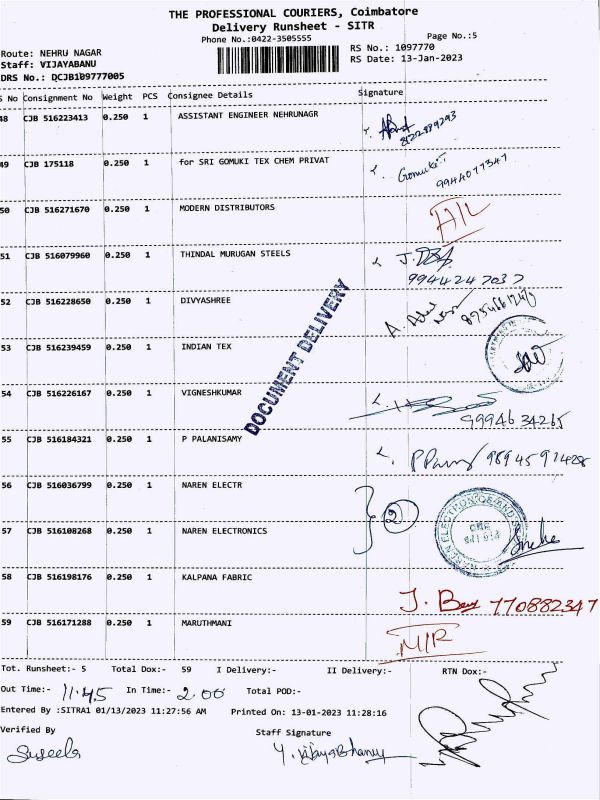 THE PROFESSIONAL COURIERS, Coimbatore
Delivery Runsheet - SITR
Phone No.:0422-3505555
Page No.:5
Route: NEHRU NAGAR
RS No.: 1097770
Staff: VIJAYABANU
RS Date: 13-Jan-2023
DRS No.: DCJB109777005
S No Consignment No Weight PCS Consignee Details Signature
48 CJB 516223413 0.250 1 ASSISTANT ENGINEER NEHRUNAGR
8122989293
49 CJB 175118 0.250 1 for SRI GOMUKI TEX CHEM PRIVAT Gomuki
9944077347
50 CJB 516271670 0.250 1 MODERN DISTRIBUTORS
51 CJB 516079960 0.250 1 THINDAL MURUGAN STEELS
9944247037
52 CJB 516228650 0.250 1 DIVYASHREE
DOCUMENT DELIVERY
53 CJB 516239459 0.250 1 INDIAN TEX
54 CJB 516226167 0.250 1 VIGNESHKUMAR
9994634265
55 CJB 516184321 0.250 1 P PALANISAMY
9894591428
56 CJB 516036799 0.250 1 NAREN ELECTR
2
57 CJB 516108268 0.250 1 NAREN ELECTRONICS
58 CJB 516198176 0.250 1 KALPANA FABRIC
770882347
59 CJB 516171288 0.250 1 MARUTHMANI
Tot. Runsheet:- 5 Total Dox:- 59 I Delivery:- II Delivery:- RTN Dox:-
Out Time:- 11.45 In Time:- 2.00 Total POD:-
Entered By :SITRA1 01/13/2023 11:27:56 AM Printed On: 13-01-2023 11:28:16
Verified By Staff Signature
Suseela